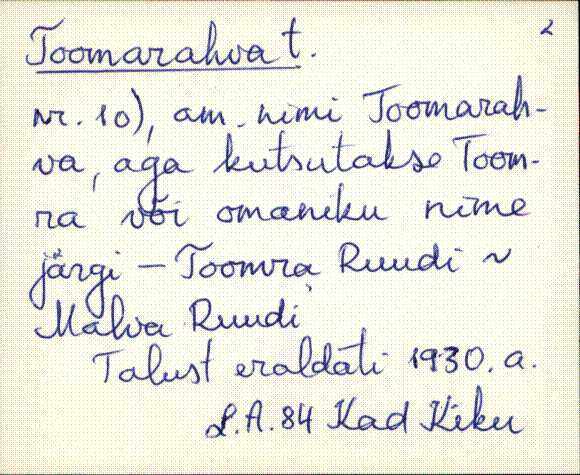 2
Toomarahva t.
nr. 10), am. nimi Toomarah-
va, aga kutsutakse Toom-
ra või omaniku nime
järgi – Toomra Ruudi ~
Malva Ruudi
Talust eraldati 1930. a.
L.A. 84 Kad Kiku